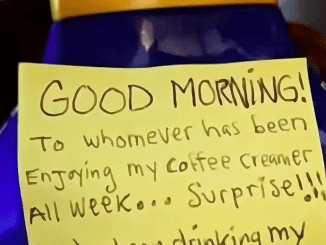 GOOD MORNING!
To whomever has been
Enjoying my coffee creamer
All week... Surprise!!!
drinking my